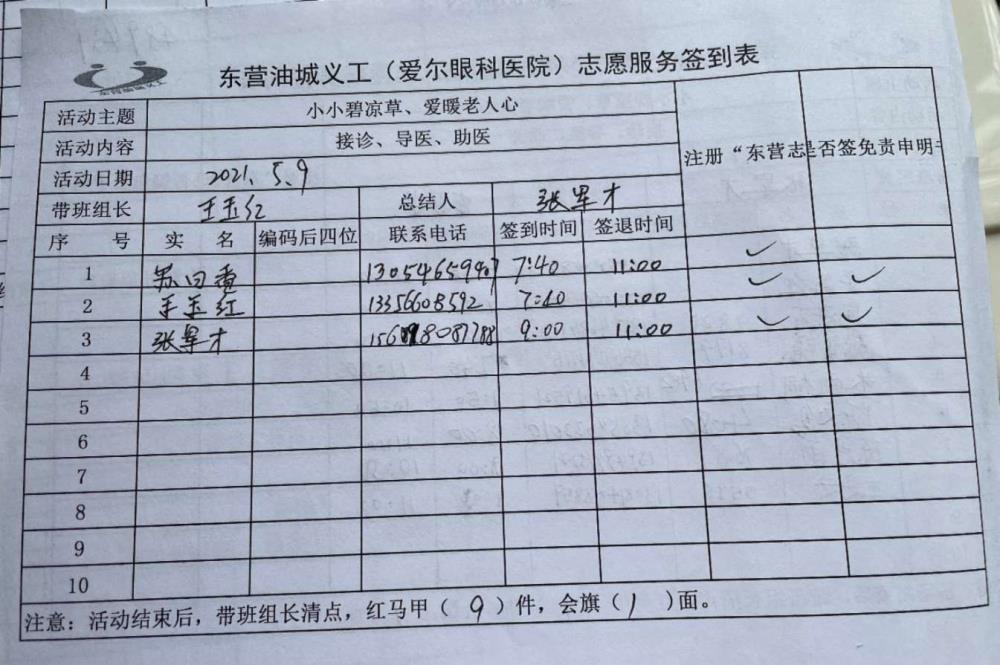 东营油城义工（爱尔眼科医院）志愿服务签到表
活动主题 小小碧凉草、爱暖老人心
活动内容 接诊、导医、助医
注册“东营志 是否签免责申明书
活动日期 2021.5.9
带班组长 王玉红 总结人 张军才
序号 实名 编码后四位 联系电话 签到时间 签退时间
1 7:40 11:00 ✓
2 王玉红 13356608592 7:40 11:00 ✓ ✓
3 张军才 9:00 11:00 ✓ ✓
4
5
6
7
8
9
10
注意：活动结束后，带班组长清点，红马甲（9）件，会旗（1）面。